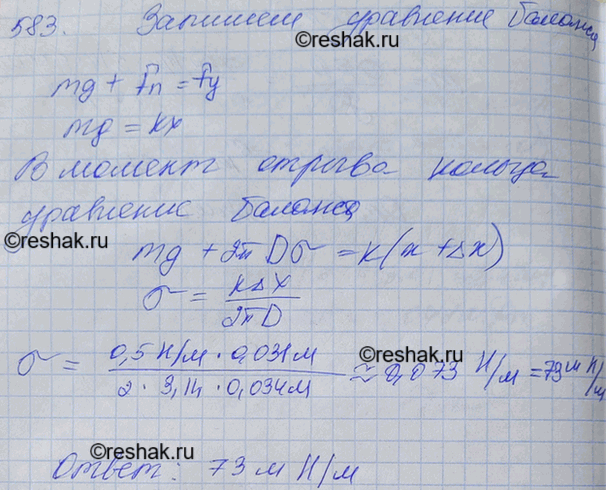 583. Запишем уравнение баланса
©reshak.ru
mg + Fп = Fy
mg = kx
В момент отрыва кольца
уравнение баланса
©reshak.ru
mg + 2πDσ = k(x + Δx)
σ = kΔx / 2πD
©reshak.ru
σ = 0,5 Н/м · 0,031 м / 2 · 3,14 · 0,034 м ≈ 0,073 Н/м = 73 мН/м
©reshak.ru
Ответ: 73 мН/м